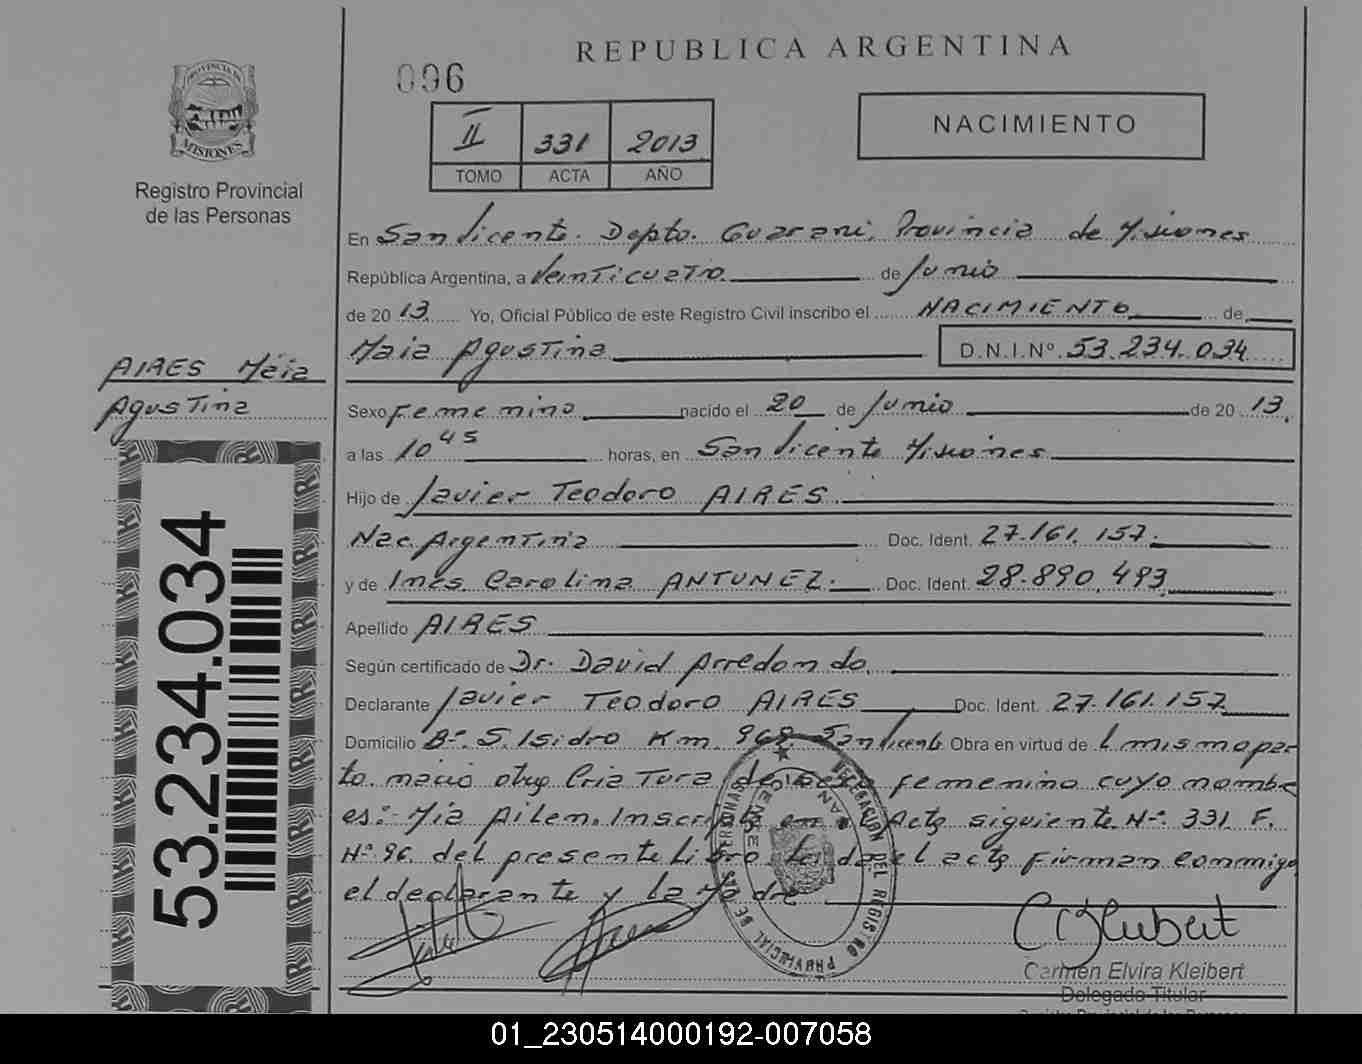 REPUBLICA ARGENTINA
096
PROVINCIA DE
MISIONES
Registro Provincial
de las Personas
II 331 2013
TOMO ACTA AÑO
NACIMIENTO
En San Vicente. Depto. Guarani, Provincia de Misiones
República Argentina, a Veinticuatro de Junio
de 2013 Yo, Oficial Público de este Registro Civil inscribo el NACIMIENTO de
Maia Agustina D.N.I.Nº 53.234.034
AIRES Maia
Agustina
Sexo Femenino nacido el 20 de Junio de 2013
a las 10 45 horas, en San Vicente Misiones
Hijo de Javier Teodoro AIRES
Nac. Argentina Doc. Ident. 27.161.157.
y de Ines Carolina ANTUNEZ. Doc. Ident. 28.890.493
Apellido AIRES
Según certificado de Dr. David Arredondo.
Declarante Javier Teodoro AIRES Doc. Ident. 27.161.157
Domicilio Bº. S. Isidro Km. 968 San Vicente Obra en virtud de L mismo par
to nacio otra Criatura de sexo femenino cuyo nombre
es: Mía Ailen. Inscripta en el Acta siguiente Nº. 331 F.
Nº 96. del presente Libro. Leida el acta firman conmigo
el declarante y la Madre
53.234.034
DELEGACION DEL REGISTRO PROVINCIAL DE LAS PERSONAS
SAN VICENTE
Carmen Elvira Kleibert
Delegado Titular
01_230514000192-007058